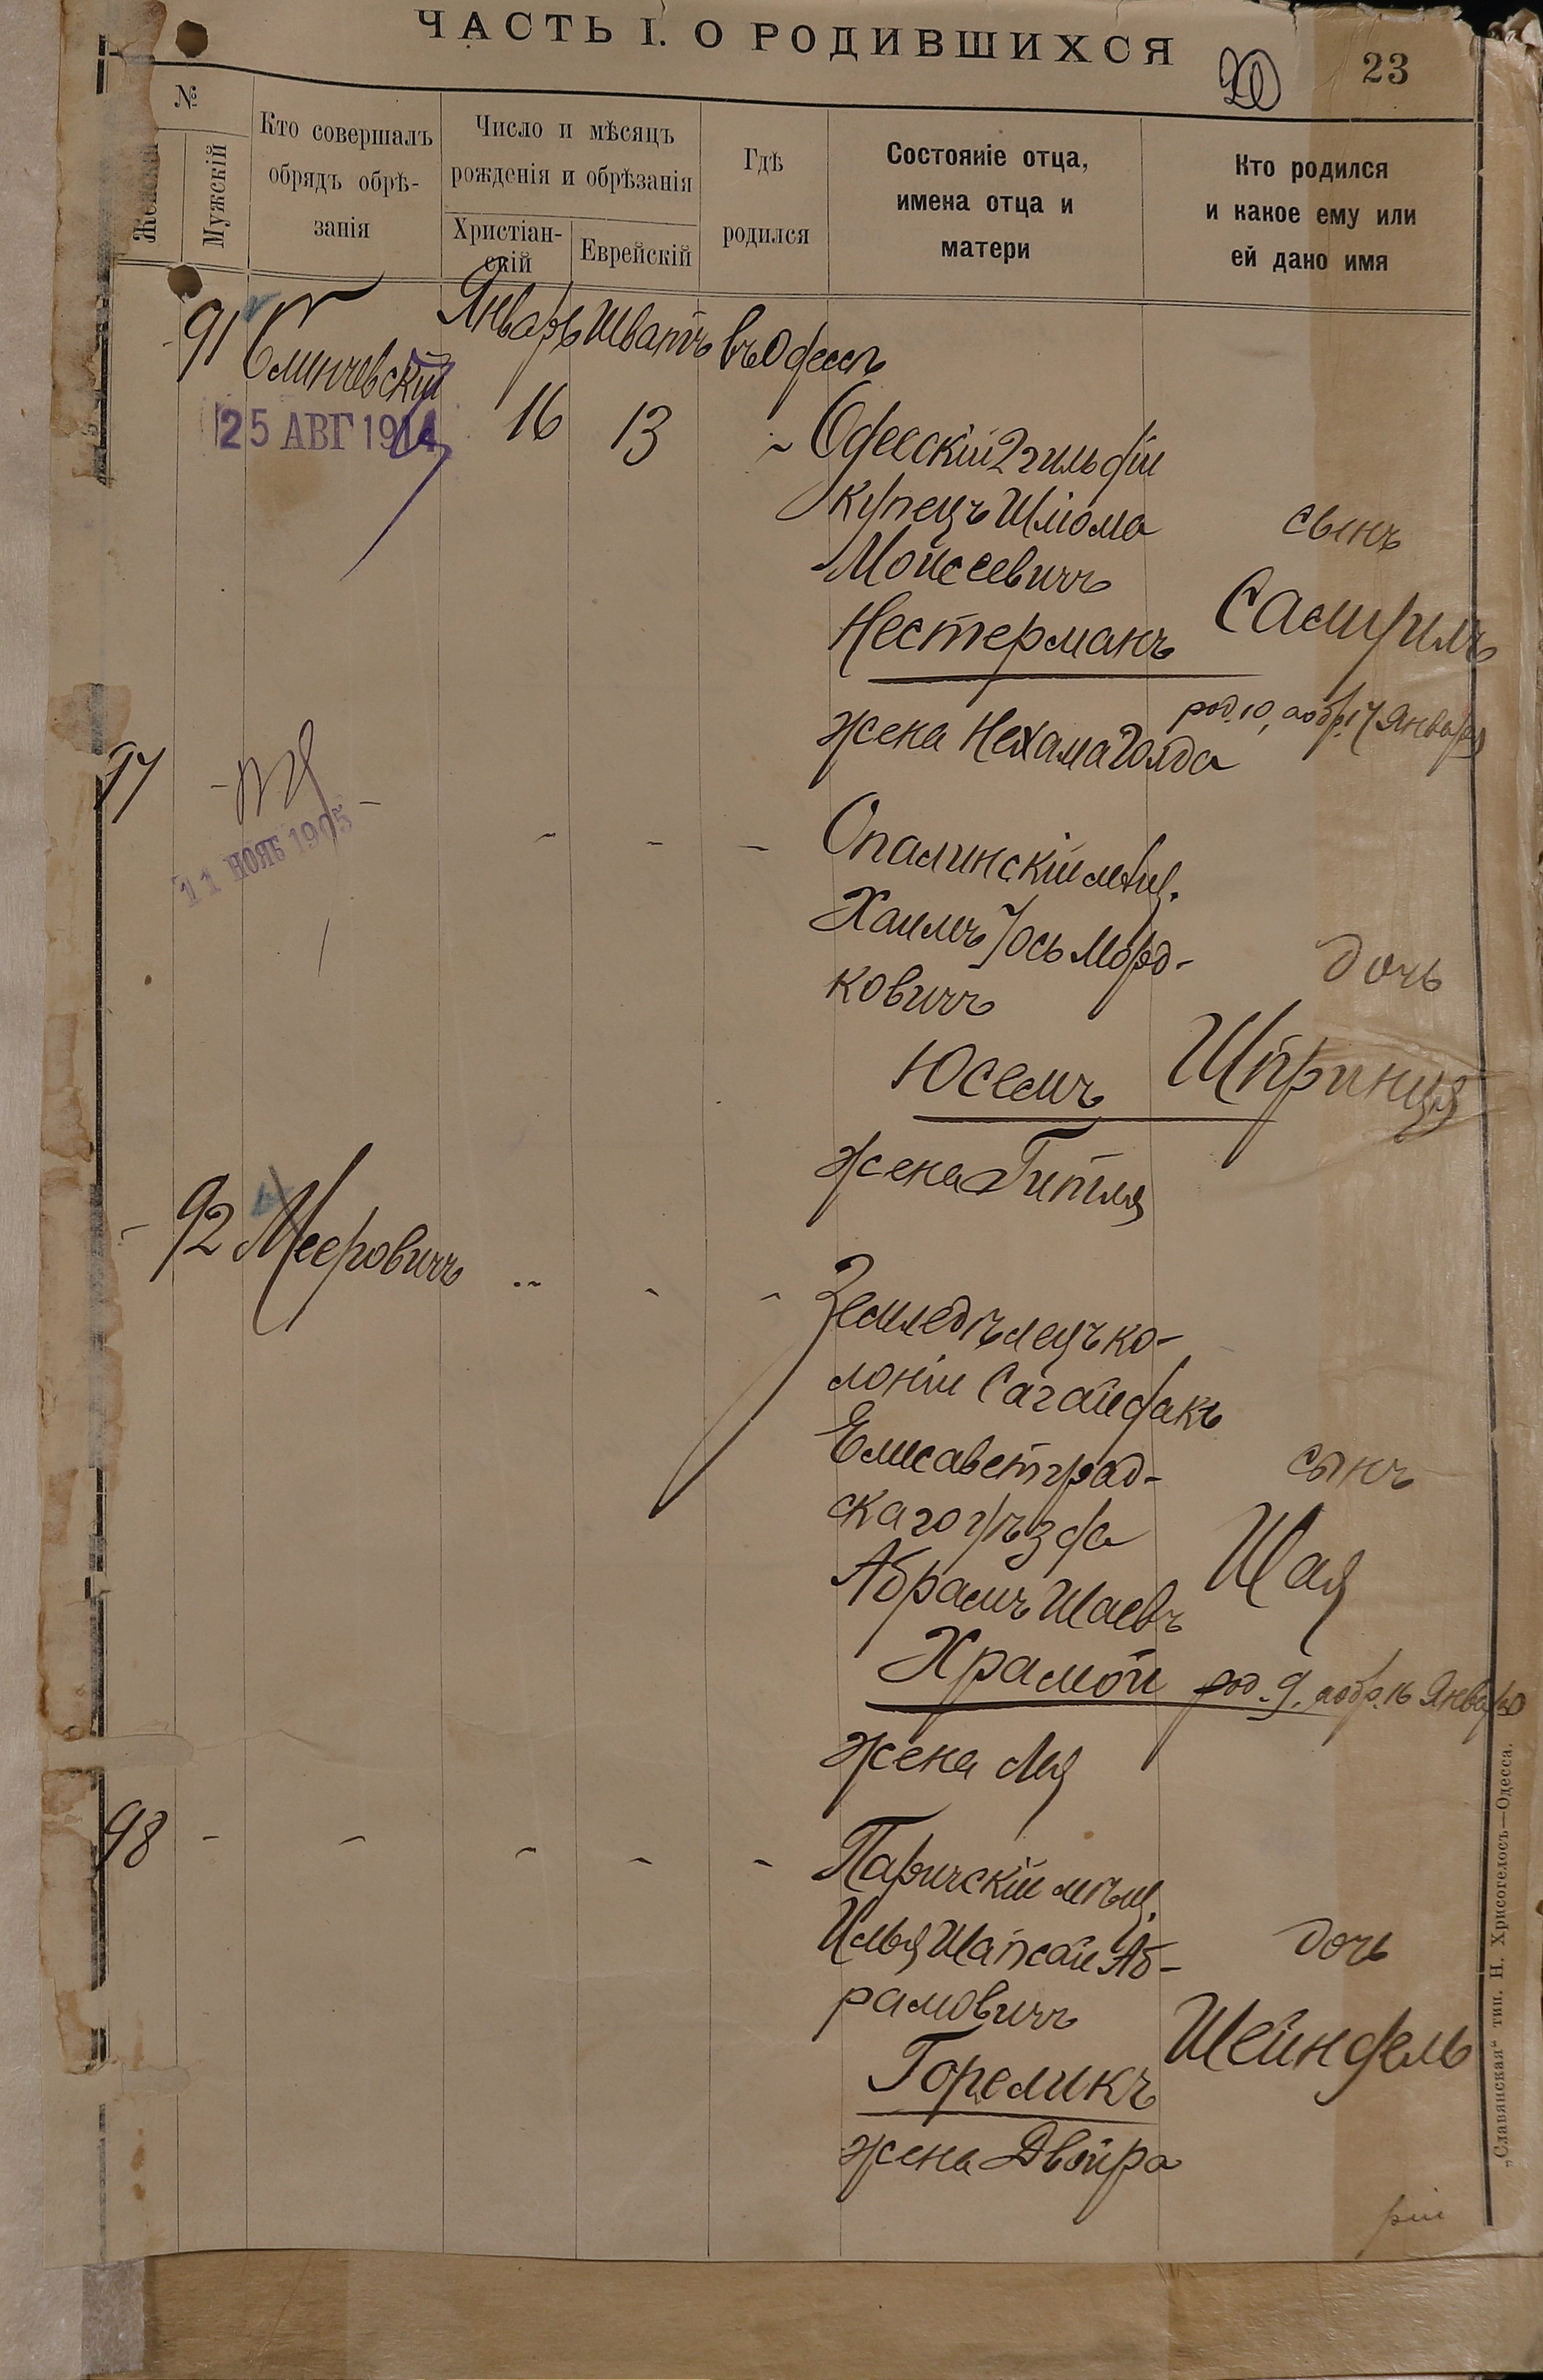 ЧАСТЬ I. О РОДИВШИХСЯ
20
23
№
Женскій
Мужскій
Кто совершалъ
обрядъ обрѣ-
занія
Число и мѣсяцъ
рожденія и обрѣзанія
Христіан-
скій
Еврейскій
Гдѣ
родился
Состояніе отца,
имена отца и
матери
Кто родился
и какое ему или
ей дано имя
Январь Шватъ въ Одессѣ
91 Слинчевскій
25 АВГ 1914
16 13
Одесскій 2 гильдіи
купецъ Шліома
Моисеевичъ
Нестерманъ
жена Нехама Голда
сынъ
Самуилъ
род. 10, а обр. 17 Января
97
11 НОЯБ 1905
Опалинскій мѣщ.
Хаимъ Іось Морд-
ковичъ
Юсемъ
жена Гитля
дочь
Шпринця
92 Мееровичъ
Земледѣлецъ ко-
лоніи Сагайдакъ
Елисаветград-
скаго уѣзда
Абрамъ Шаевъ
Храмой
жена Лея
сынъ
Шая
род. 9, а обр. 16 Января
98
Паричскій мѣщ.
Илья Шапсай Аб-
рамовичъ
Гореликъ
жена Двойра
дочь
Шейндель
„Славянская“ тип. Н. Хрисогелосъ—Одесса.